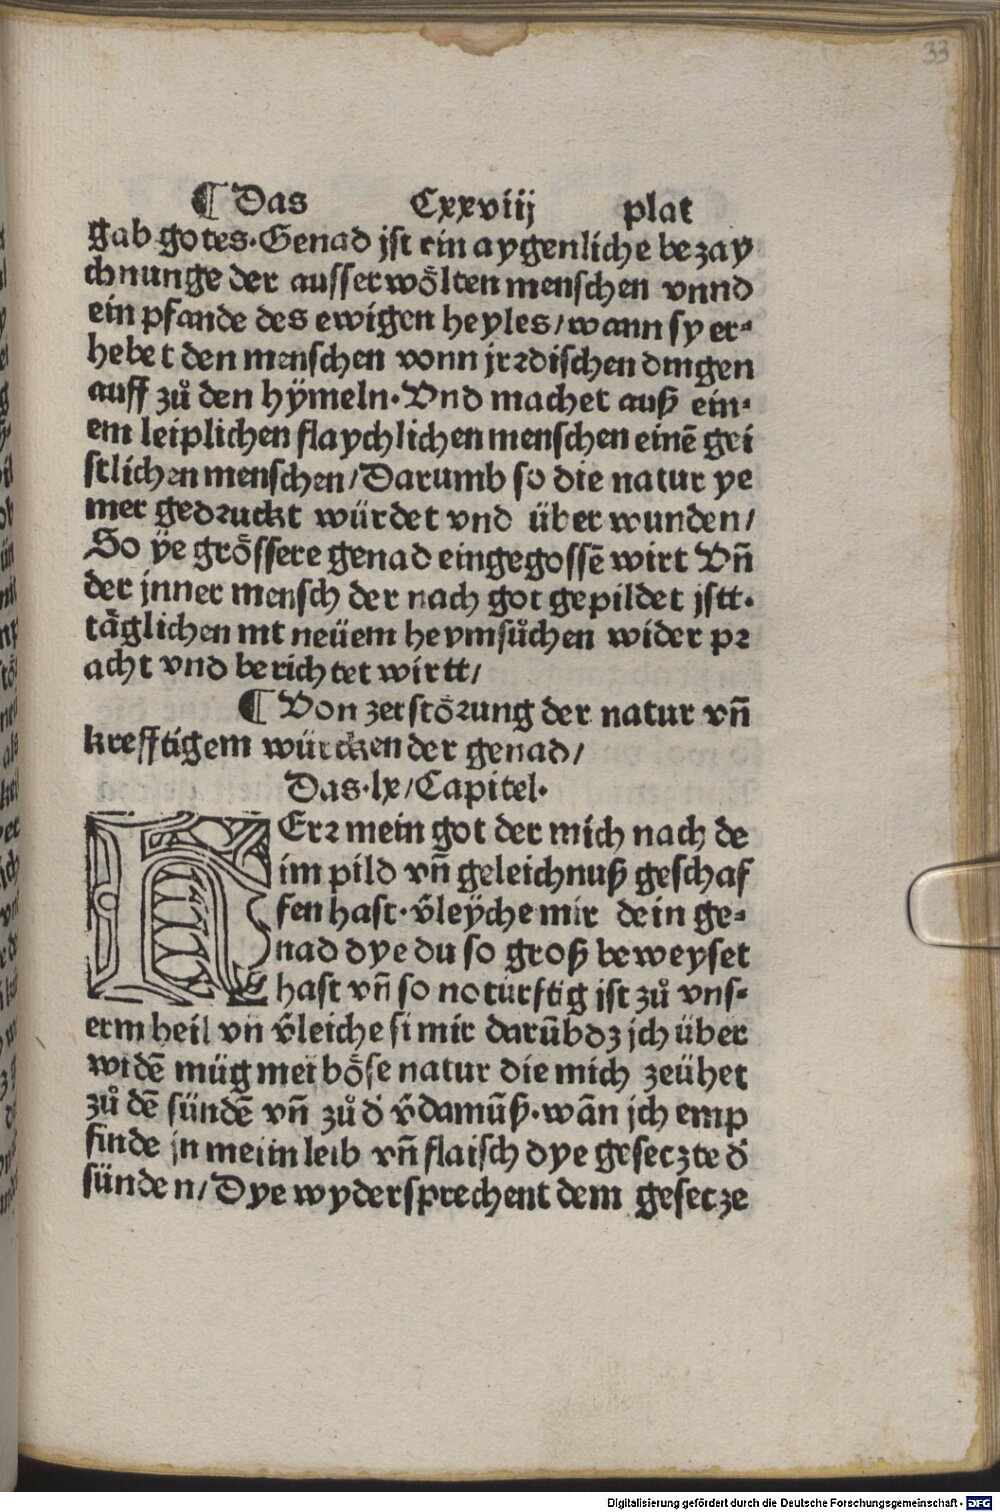 33
¶ Das Cxxviij plat
gab gotes·Genad jst ein aygenliche bezay
chnunge der ausserwoͤlten menschen vnnd
ein pfande des ewigen heyles/wann sy er⸗
hebet den menschen vonn jrꝛdischen dingen
auff zuͦ den hẏmeln·Vnd machet auß ein⸗
em leiplichen flaychlichen menschen einē gei
stlichen menschen/Darumb so die natur ye
mer gedꝛuckt würdet vnd über wunden/
So ÿe groͤssere genad eingegossē wirt Vn̄
der jnner mensch der nach got gepildet jstt·
taͤglichen mt neüem heymsuͦchen wider pꝛ
acht vnd berichtet wirtt/
¶ Von zerstoͤꝛung der natur vn̄
krefftigem würcken der genad/
Das·lx/Capitel·
HErꝛ mein got der mich nach de
im pild vn̄ geleichnuß geschaf
fen hast·v̄leÿche mir dein ge⸗
nad dye du so groß beweyset
hast vn̄ so noturftig jst zuͦ vns⸗
erm heil vn v̄leiche si mir darūb dz jch über
widē müg mei boͤse natur die mich zeühet
zuͦ dē sündē vn̄ zuͦ d̄ v̄damūß·wān jch emp
finde jn meim leib vn̄ flaisch dye gesetzte d̄
sünden/Dye wydersprechent dem gesetze
Digitalisierung gefördert durch die Deutsche Forschungsgemeinschaft - DFG